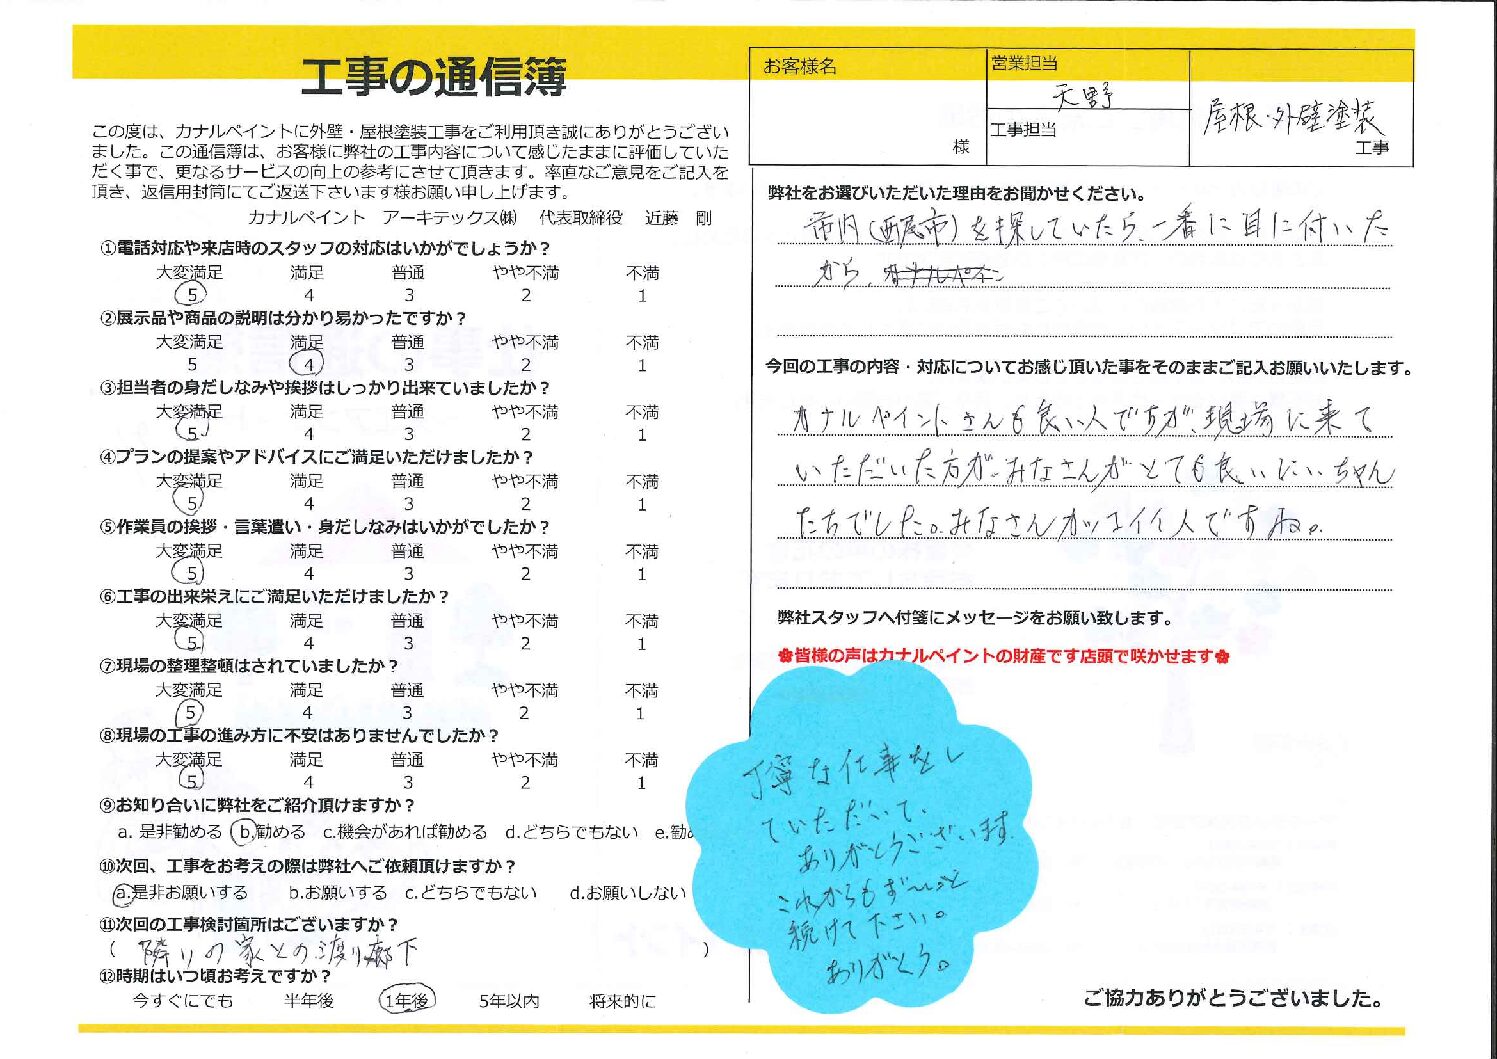 工事の通信簿
お客様名
様
営業担当
天野
工事担当
屋根・外壁塗装
工事
この度は、カナルペイントに外壁・屋根塗装工事をご利用頂き誠にありがとうござい
ました。この通信簿は、お客様に弊社の工事内容について感じたままに評価していた
だく事で、更なるサービスの向上の参考にさせて頂きます。率直なご意見をご記入を
頂き、返信用封筒にてご返送下さいます様お願い申し上げます。
カナルペイント アーキテックス㈱ 代表取締役 近藤 剛
①電話対応や来店時のスタッフの対応はいかがでしょうか？
大変満足 満足 普通 やや不満 不満
5 4 3 2 1
②展示品や商品の説明は分かり易かったですか？
大変満足 満足 普通 やや不満 不満
5 4 3 2 1
③担当者の身だしなみや挨拶はしっかり出来ていましたか？
大変満足 満足 普通 やや不満 不満
5 4 3 2 1
④プランの提案やアドバイスにご満足いただけましたか？
大変満足 満足 普通 やや不満 不満
5 4 3 2 1
⑤作業員の挨拶・言葉遣い・身だしなみはいかがでしたか？
大変満足 満足 普通 やや不満 不満
5 4 3 2 1
⑥工事の出来栄えにご満足いただけましたか？
大変満足 満足 普通 やや不満 不満
5 4 3 2 1
⑦現場の整理整頓はされていましたか？
大変満足 満足 普通 やや不満 不満
5 4 3 2 1
⑧現場の工事の進み方に不安はありませんでしたか？
大変満足 満足 普通 やや不満 不満
5 4 3 2 1
⑨お知り合いに弊社をご紹介頂けますか？
a. 是非勧める b.勧める c.機会があれば勧める d.どちらでもない e.勧
⑩次回、工事をお考えの際は弊社へご依頼頂けますか？
a.是非お願いする b.お願いする c.どちらでもない d.お願いしない
⑪次回の工事検討箇所はございますか？
( 隣りの家との渡り廊下 )
⑫時期はいつ頃お考えですか？
今すぐにでも 半年後 1年後 5年以内 将来的に
弊社をお選びいただいた理由をお聞かせください。
市内(西尾市)を探していたら、一番に目に付いた
から、カナルペイン
今回の工事の内容・対応についてお感じ頂いた事をそのままご記入お願いいたします。
カナルペイントさんも良い人ですが、現場に来て
いただいた方が、みなさんがとても良いにいちゃん
たちでした。みなさんカッコイイ人ですね。
弊社スタッフへ付箋にメッセージをお願い致します。
✿皆様の声はカナルペイントの財産です店頭で咲かせます✿
丁寧な仕事をし
ていただいて、
ありがとうございます。
これからもず〜っと
続けて下さい。
ありがとう。
ご協力ありがとうございました。